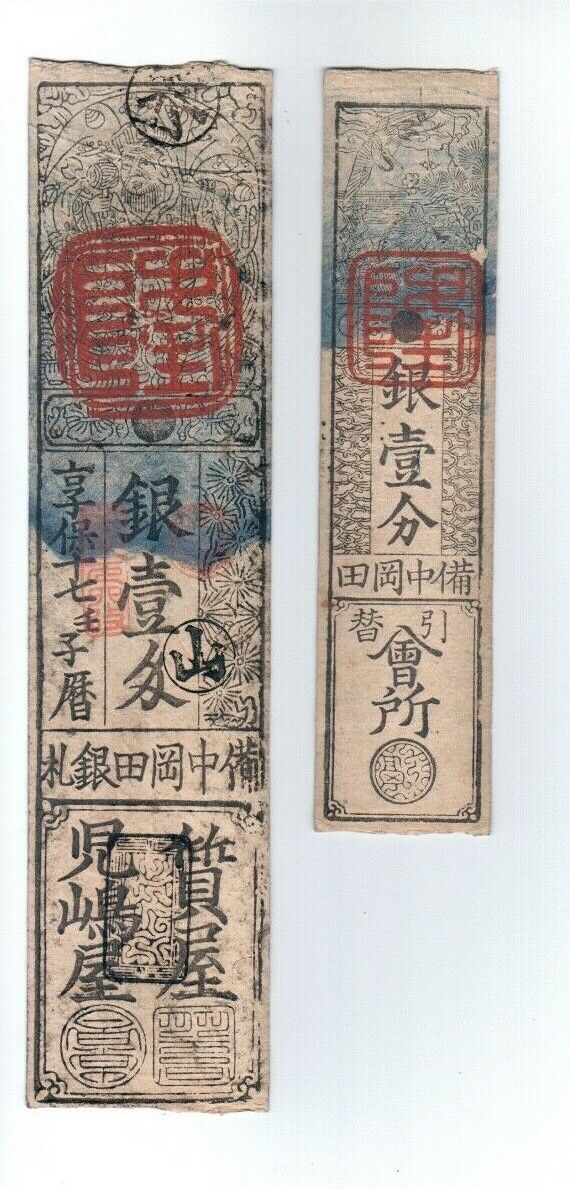 銀壹匁
享保十七壬子暦
山
備中岡田銀札
質屋
児嶋屋
銀壹分
備中岡田
引替
會所